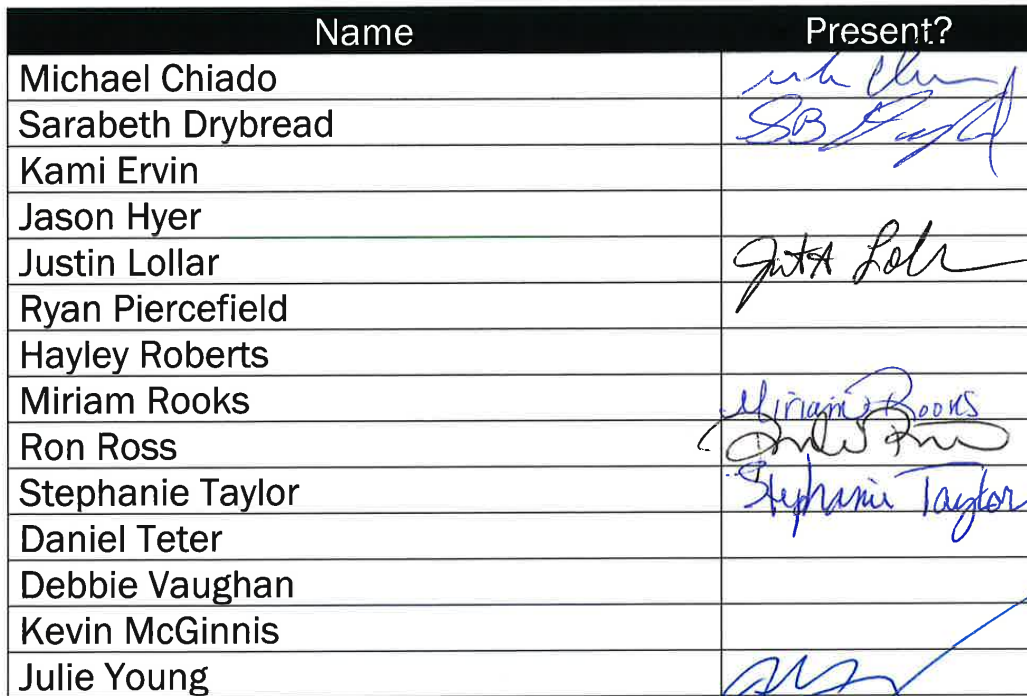 Name Present?
Michael Chiado
Sarabeth Drybread SB
Kami Ervin
Jason Hyer
Justin Lollar
Ryan Piercefield
Hayley Roberts
Miriam Rooks Miriam Rooks
Ron Ross
Stephanie Taylor Stephanie Taylor
Daniel Teter
Debbie Vaughan
Kevin McGinnis
Julie Young